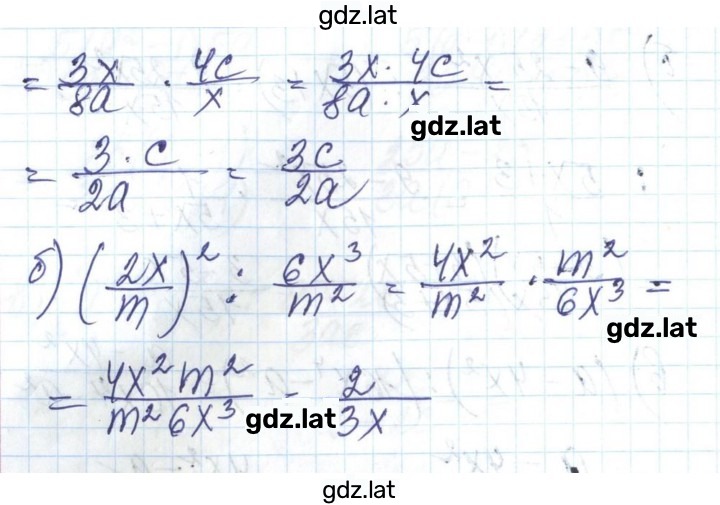 gdz.lat
= 3x/8a · 4c/x = 3x · 4c/8a · x =
gdz.lat
= 3 · c/2a = 3c/2a
б) (2x/m)² : 6x³/m² = 4x²/m² · m²/6x³ =
gdz.lat
= 4x²m²/m²6x³ = 2/3x
gdz.lat
gdz.lat